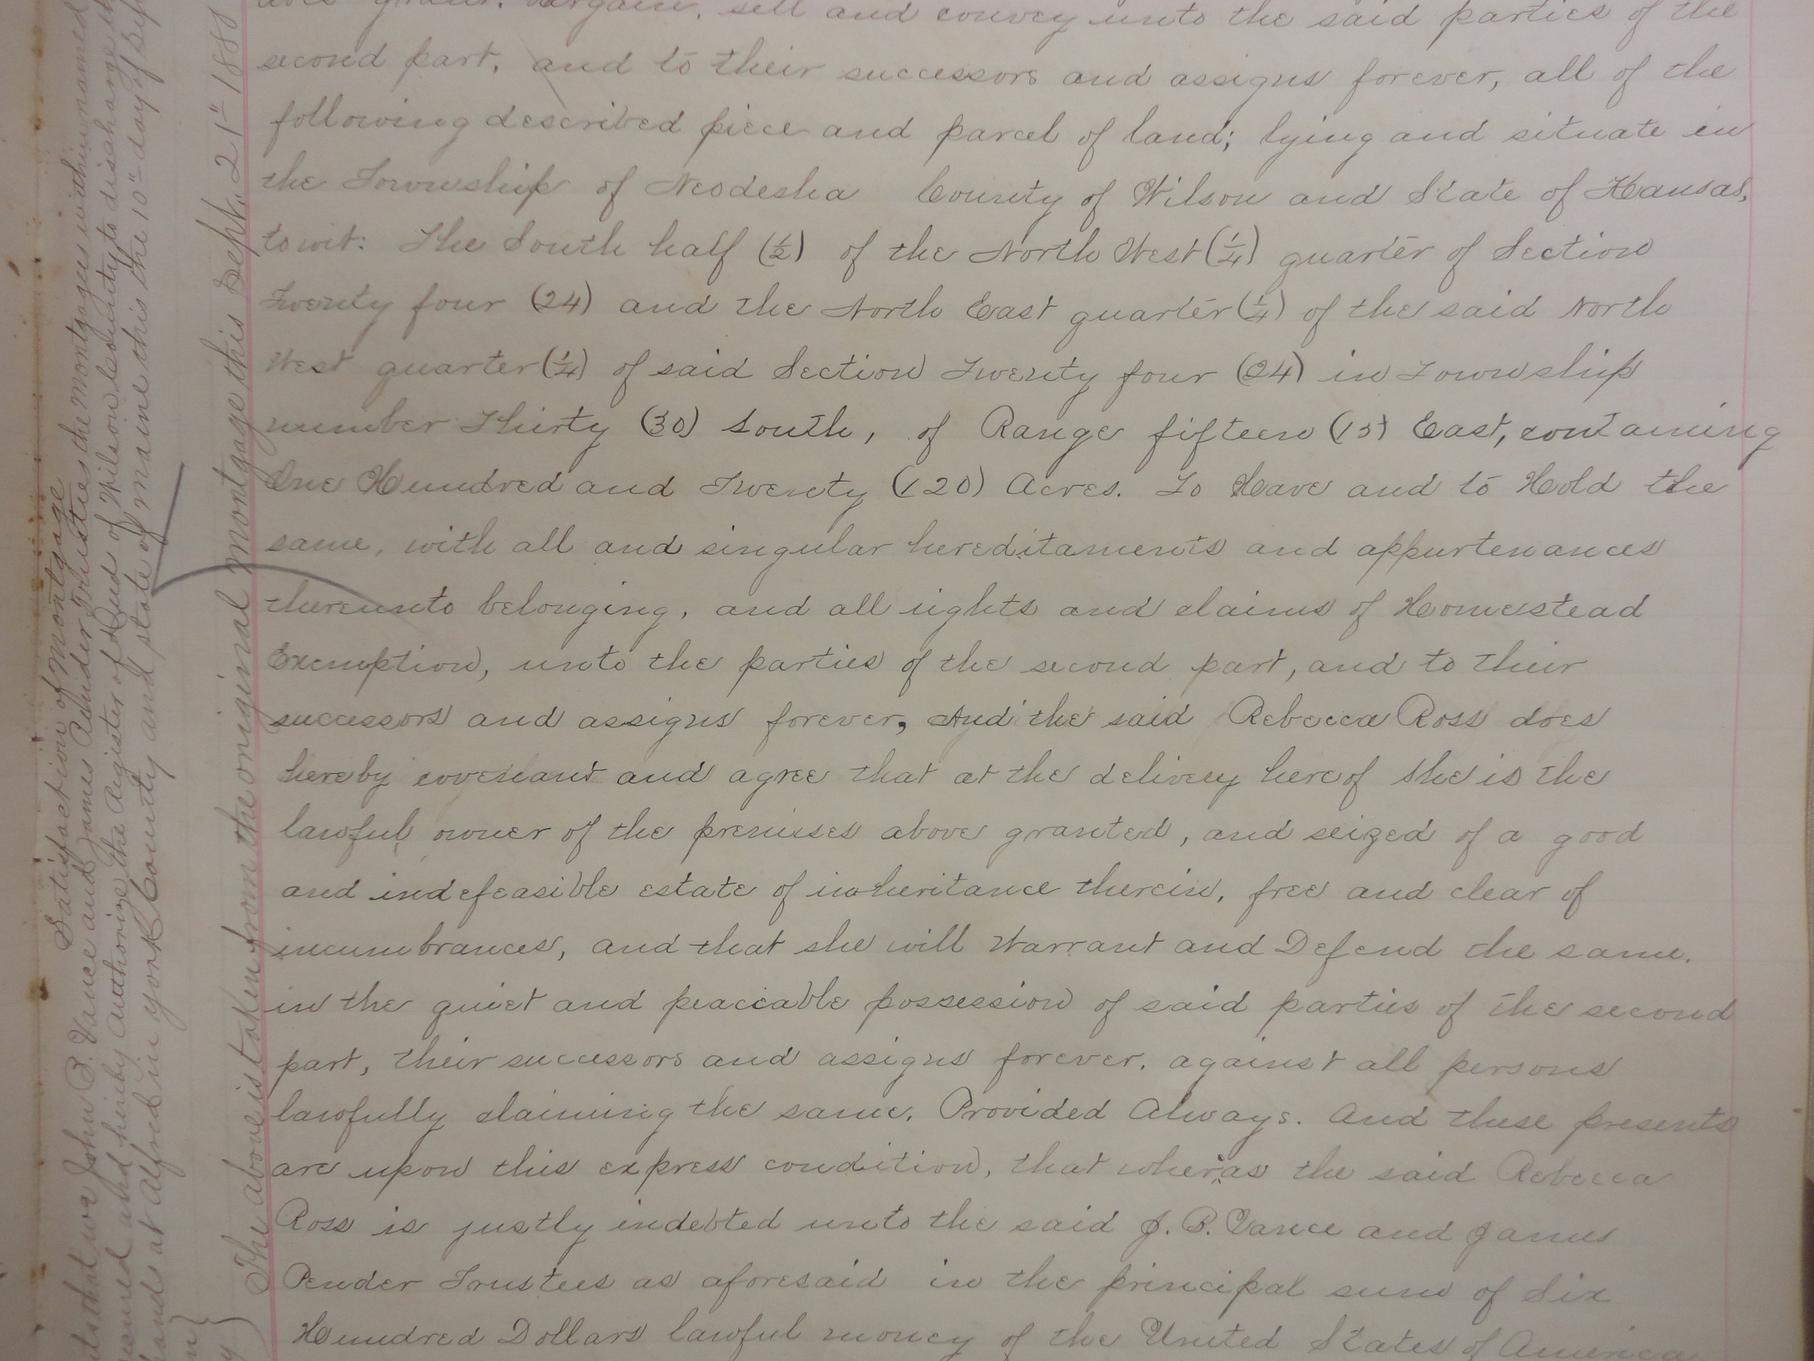 does grant, bargain, sell and convey unto the said parties of the
second part, and to their successors and assigns forever, all of the
following described piece and parcel of land; lying and situate in
the Township of Neodesha County of Wilson and State of Kansas,
towit: The South half (1/2) of the North West (1/4) quarter of Section
Twenty four (24) and the North East quarter (1/4) of the said North
West quarter (1/4) of said Section Twenty four (24) in Township
number Thirty (30) South, of Range fifteen (15) East, containing
One Hundred and Twenty (120) Acres. To Have and to Hold the
same, with all and singular hereditaments and appurtenances
thereunto belonging, and all rights and claims of Homestead
Exemption, unto the parties of the second part, and to their
successors and assigns forever, And the said Rebecca Ross does
hereby covenant and agree that at the delivery hereof She is the
lawful owner of the premises above granted, and seized of a good
and indefeasible estate of inheritance therein, free and clear of
incumbrances, and that she will Warrant and Defend the same.
in the quiet and peaceable possession of said parties of the second
part, their successors and assigns forever, against all persons
lawfully claiming the same. Provided Always. And these presents
are upon this express condition, that whereas the said Rebecca
Ross is justly indebted unto the said J. B. Vance and James
Pender Trustees as aforesaid in the principal sum of Six
Hundred Dollars lawful money of the United States of America
Satisfaction of Mortgage
that we John B. Vance and James Pender Trustees the Mortgagees within named
and hereby authorize the Register of Deed of Wilson County to discharge
hands at Alfred in York County and State of Maine this the 10" day of
The above is taken from the original mortgage this Sept. 21st 1888